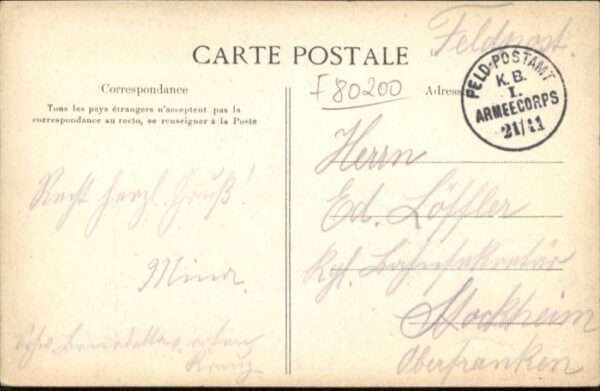 Feldpost.
CARTE POSTALE
Correspondance
Tous les pays étrangers n'acceptent pas la
correspondance au recto, se renseigner à la Poste
F 80200
Adres
FELD-POSTAMT
K. B.
I.
ARMEECORPS
21/11
Recht herzl. Gruß!
Mina.
Kreuz
Herrn
Ed. Löffler
Kgl. Bahnsekretär
Stockheim
Oberfranken